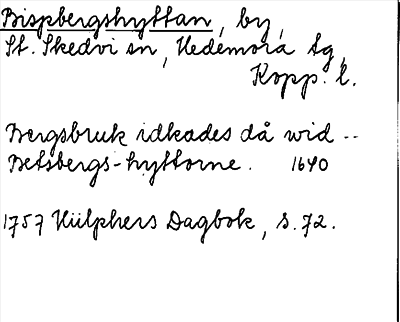 Bispbergshyttan, by,
St. Skedvi sn, Hedemora tg,
Kopp. l.
Bergsbruk idkades då wid --
Betsbergs-hyttorne. 1640
1757 Hülphers Dagbok, s. 72.